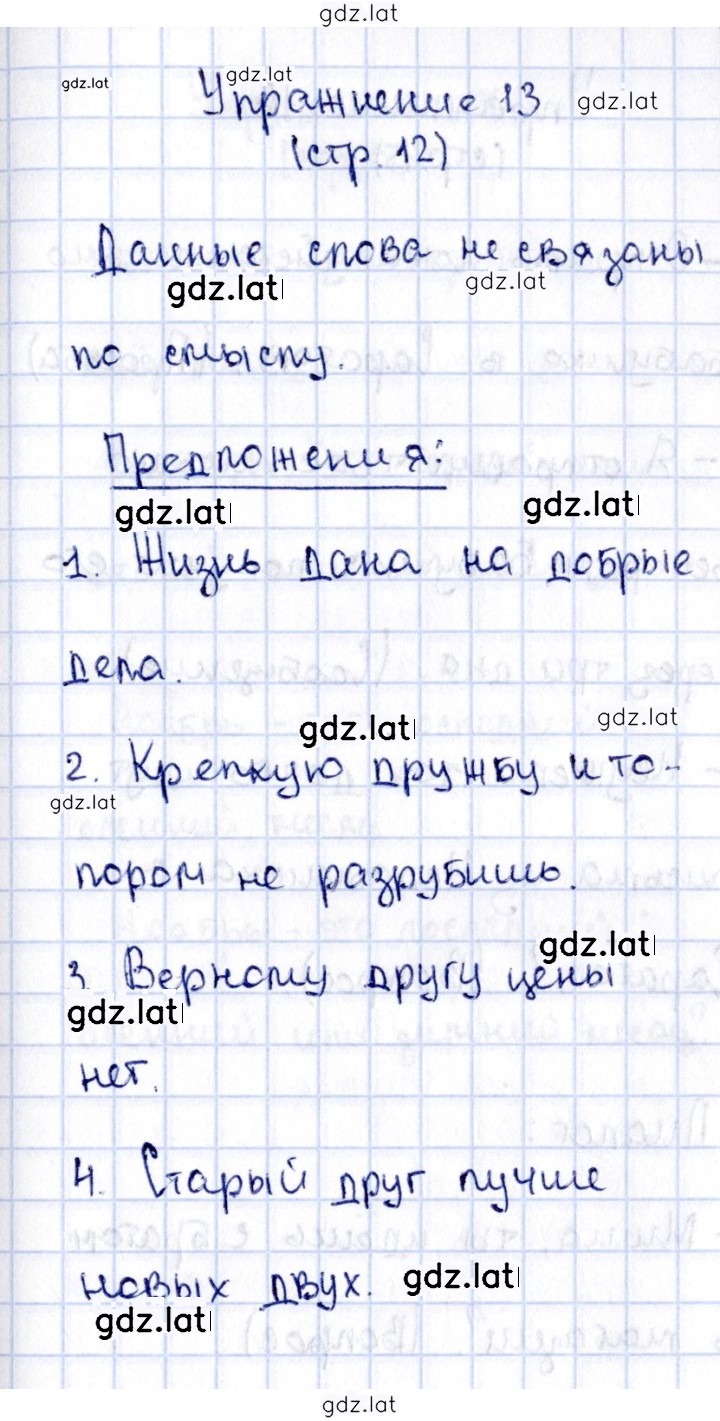 gdz.lat
gdz.lat
gdz.lat
Упражнение 13 gdz.lat
(стр. 12)
Данные слова не связаны
gdz.lat gdz.lat
по смыслу.
Предложения:
gdz.lat gdz.lat
1. Жизнь дана на добрые
дела.
gdz.lat gdz.lat
2. Крепкую дружбу и то-
gdz.lat
пором не разрубишь.
gdz.lat
3 Верному другу цены
gdz.lat
нет.
4. Старый друг лучше
новых двух. gdz.lat
gdz.lat
gdz.lat